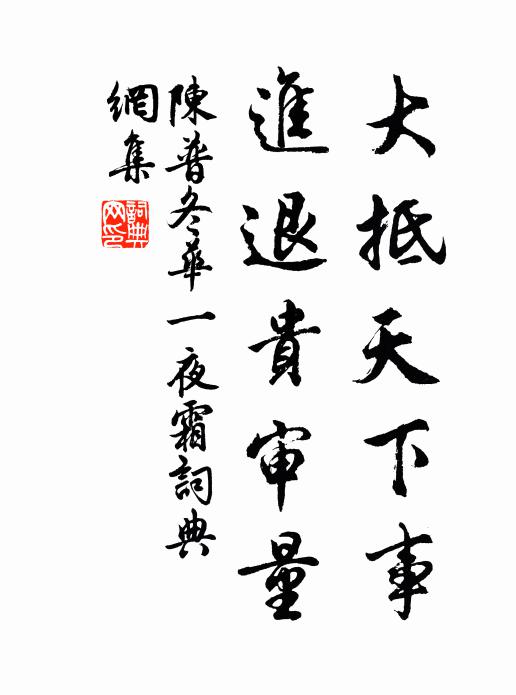 大抵天下事
進退貴审量
陳普冬華一夜霜詞典
網集
詞典
网印